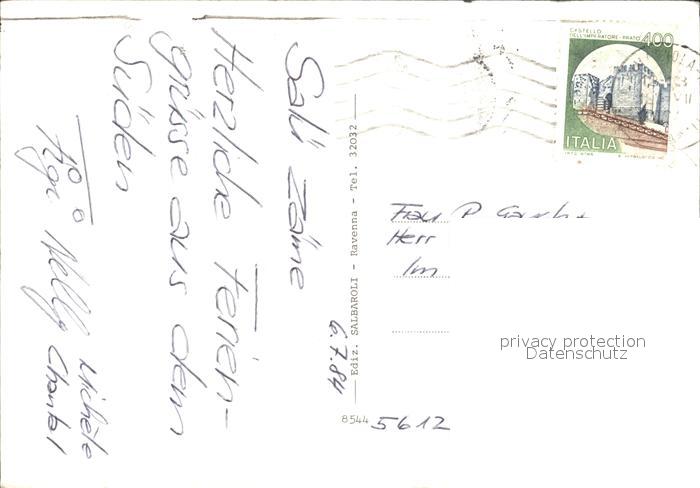 CASTELLO
DELL'IMPERATORE - PRATO
400
ITALIA
Sali zäme
Herzliche Ferien-
grüsse aus dem
Süden
Nelly Michèle
Chantal
6.7.84
Ediz. SALBAROLI - Ravenna - Tel. 32032
8544
Frau P
Herr
Im
5612
privacy protection
Datenschutz